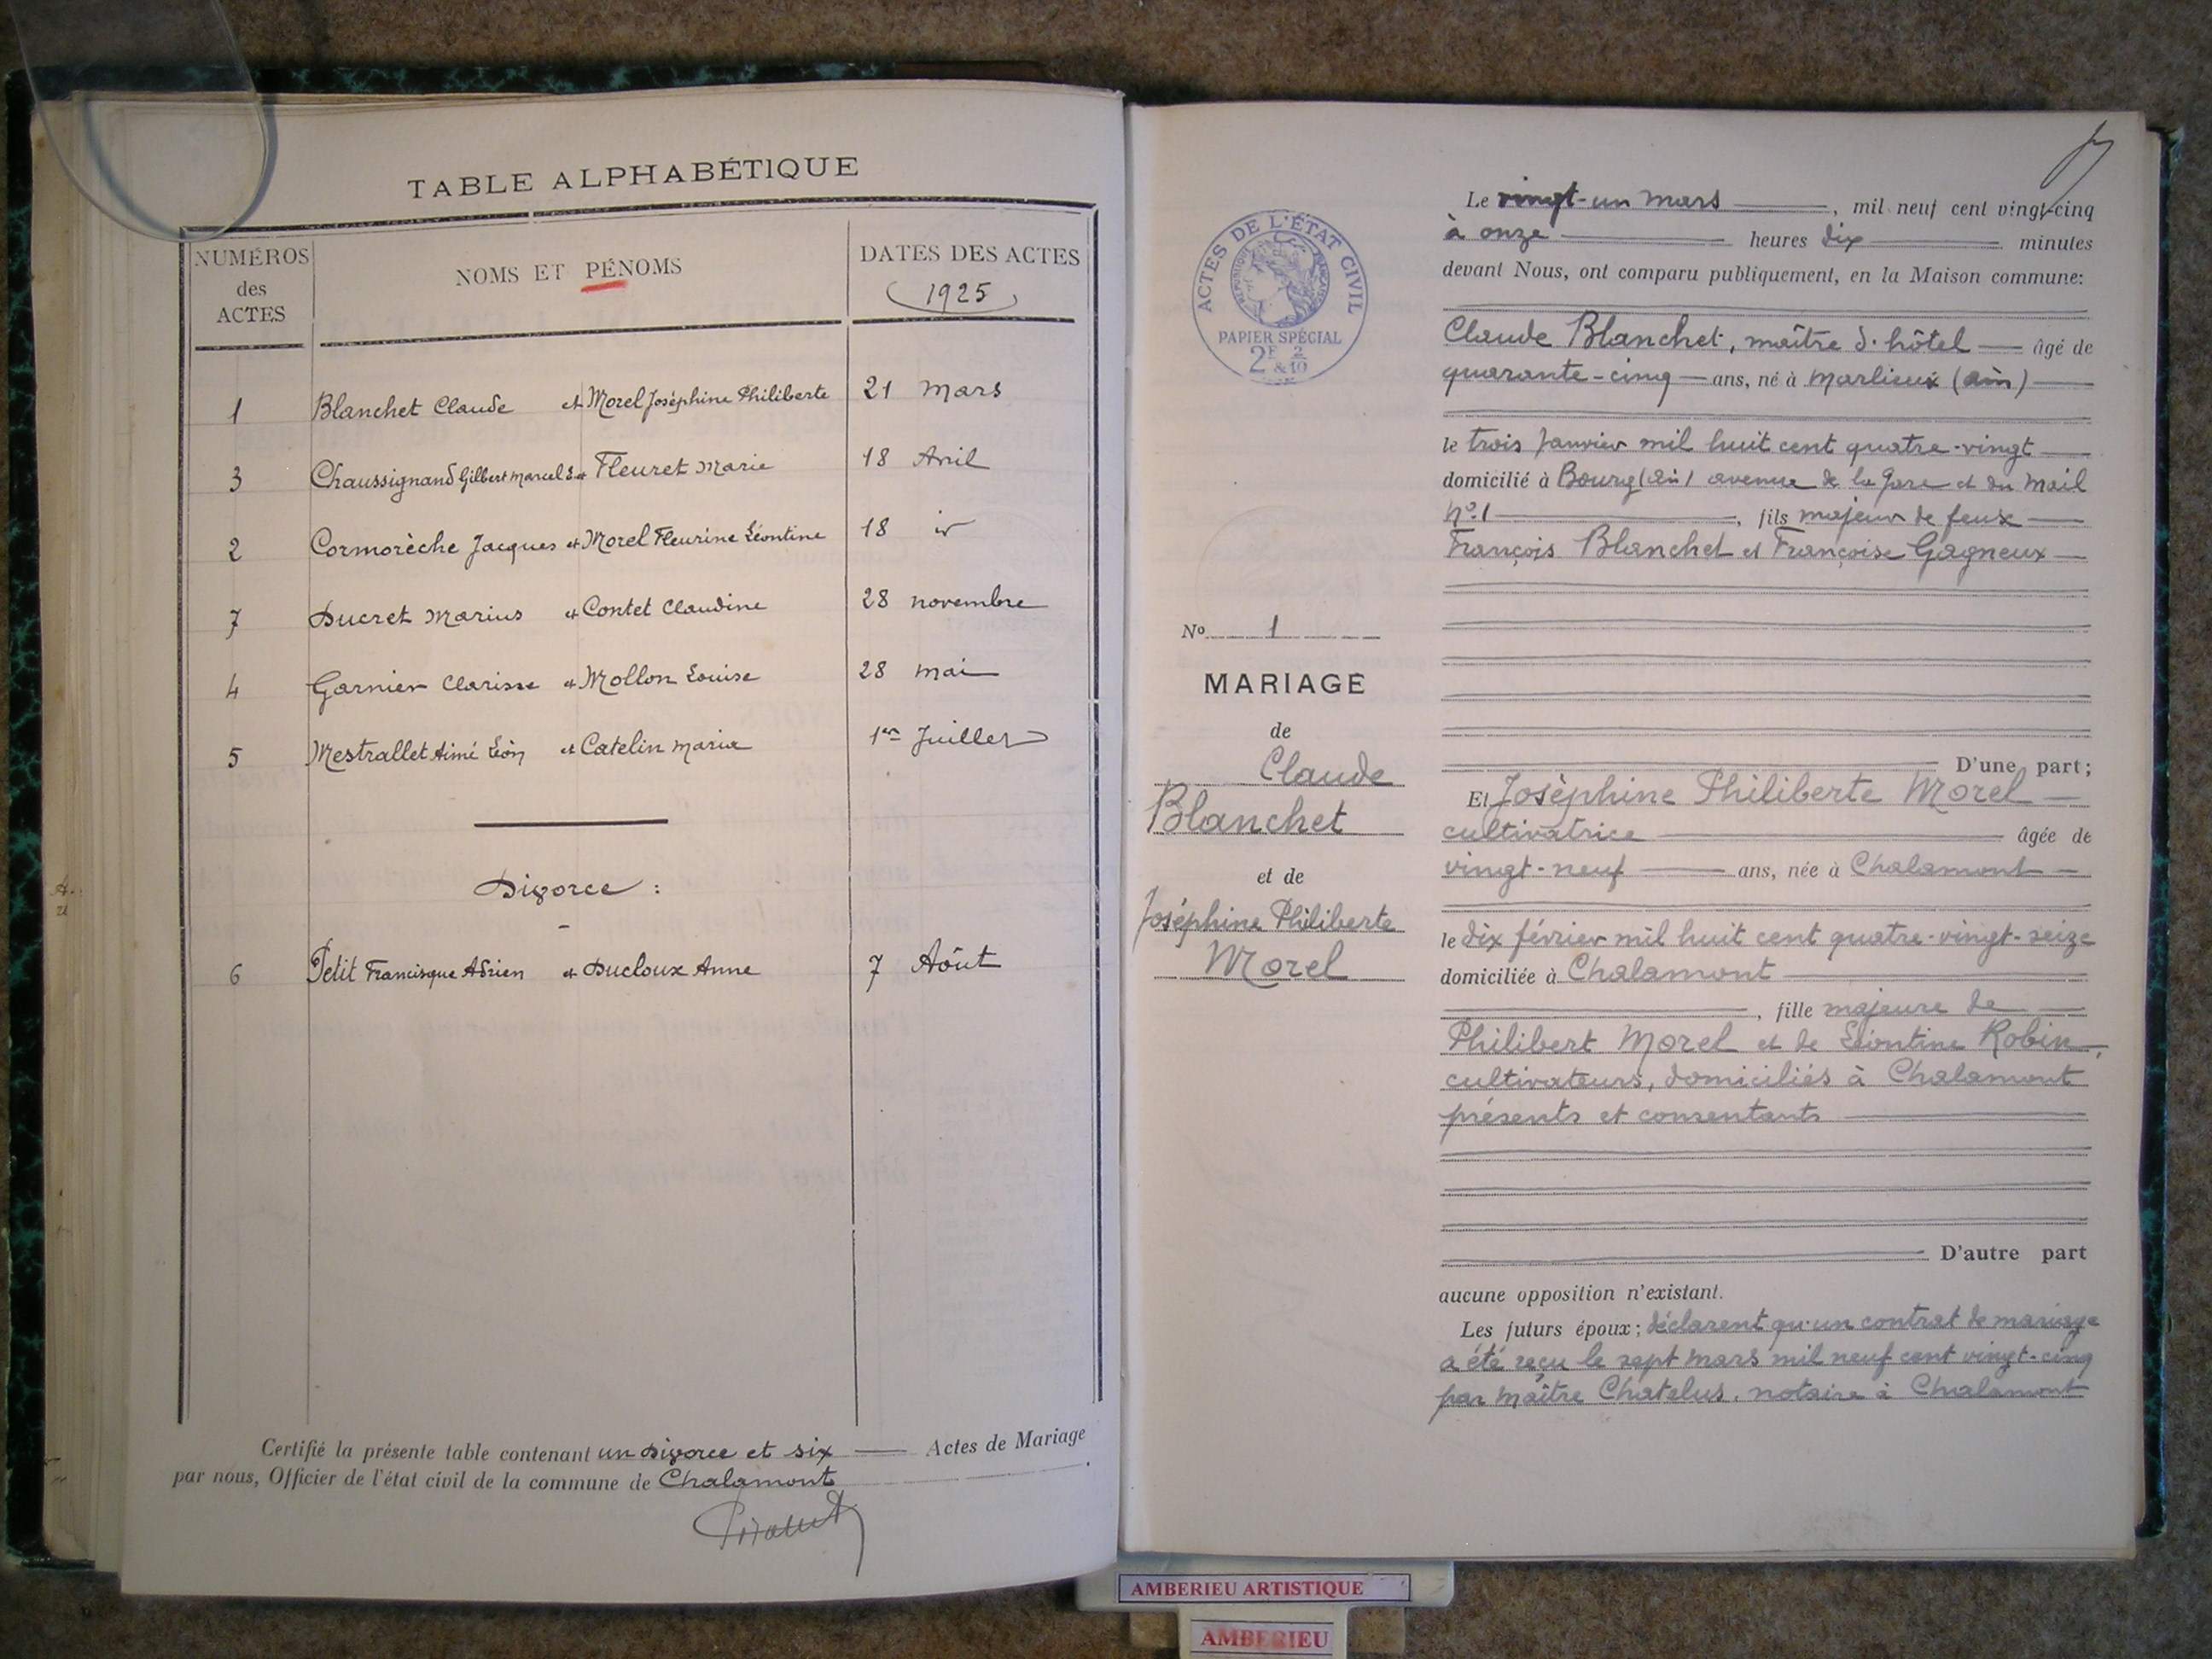 TABLE ALPHABÉTIQUE
NUMÉROS des ACTES
NOMS ET PÉNOMS
DATES DES ACTES
1925
1 Blanchet Claude et Morel Joséphine Philiberte 21 Mars
3 Chaussignand Gilbert Marcel E. et Fleuret Marie 18 Avril
2 Cormorèche Jacques et Morel Fleurine Léontine 18 id
7 Ducret Marius et Contet Claudine 28 novembre
4 Garnier Clarisse et Mollon Louise 28 mai
5 Mestrallet Aimé Léon et Catelin Marie 1er Juillet
Divorce :
6 Petit Francisque Adrien et Ducloux Anne 7 Aôut
Certifié la présente table contenant un divorce et six Actes de Mariage
par nous, Officier de l'état civil de la commune de Chalamont.
ACTES DE L'ÉTAT CIVIL
RÉPUBLIQUE FRANÇAISE
PAPIER SPÉCIAL
2F & 2/10
No 1
MARIAGE
de
Claude
Blanchet
et de
Joséphine Philiberte
Morel
Le vingt-un mars, mil neuf cent vingt-cinq
à onze heures dix minutes
devant Nous, ont comparu publiquement, en la Maison commune:
Claude Blanchet, maître d'hôtel âgé de
quarante-cinq ans, né à Marlieux (ain)
le trois Janvier mil huit cent quatre-vingt
domicilié à Bourg (ain) avenue de la Gare et du Mail
No 1, fils majeur de feux
François Blanchet et Françoise Gagneux
D'une part;
Et Joséphine Philiberte Morel
cultivatrice âgée de
vingt-neuf ans, née à Chalamont
le dix février mil huit cent quatre-vingt-seize
domiciliée à Chalamont
, fille majeure de
Philibert Morel et de Léontine Robin,
cultivateurs, domiciliés à Chalamont
présents et consentants
D'autre part
aucune opposition n'existant.
Les futurs époux; déclarent qu'un contrat de mariage
a été reçu le sept mars mil neuf cent vingt-cinq
par maître Chatelus, notaire à Chalamont
AMBERIEU ARTISTIQUE
AMBERIEU